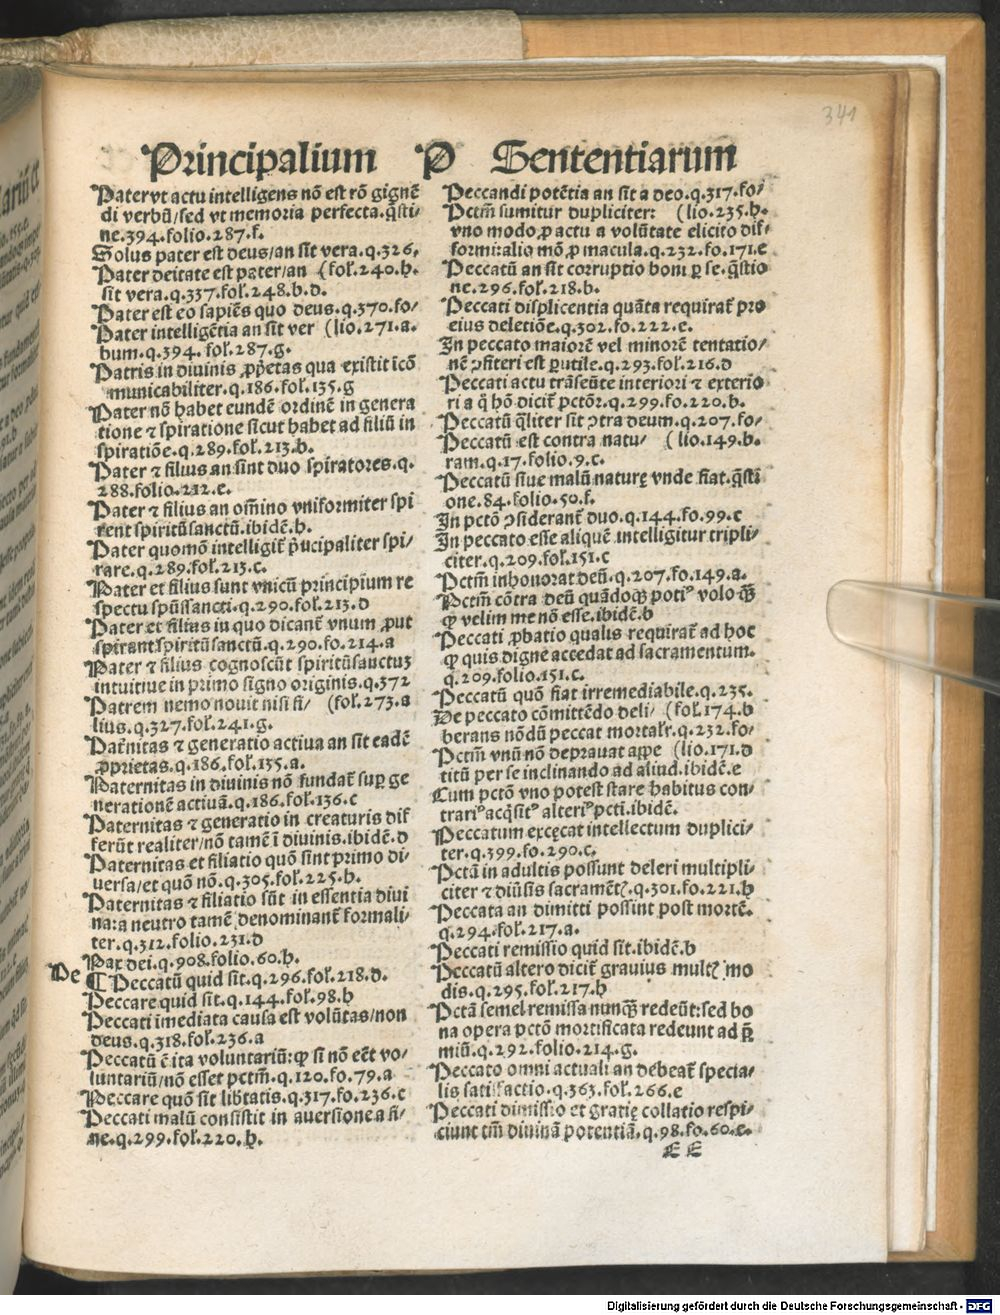 341
Principalium P Sententiarum
Pater vt actu intelligens nō est rō gignē
di verbū/sed vt memoria perfecta.q̄sti/
ne.394.folio.287.f.
Solus pater est deus/an sit vera.q.326.
Pater deitate est pater/an (fol.240.h.
sit vera.q.337.fol.248.b.d.
Pater est eo sapiēs quo deus.q.370.fo/
Pater intelligētia an sit ver (lio.271.a.
bum.q.394. fol.287.g.
Patris in diuinis ꝓp̄etas qua existit icō
municabiliter.q.186.fol.135.g
Pater nō habet eundē ordinē in genera
tione ⁊ spiratione sicut habet ad filiū in
spiratiōe.q.289.fol.213.b.
Pater ⁊ filius an sint duo spiratores.q.
288.folio.212.e.
Pater ⁊ filius an om̄ino vniformiter spi
rent spiritūsanctū.ibidē.h.
Pater quomō intelligit̄ p̄ncipaliter spi/
rare.q.289.fol.213.c.
Pater et filius sunt vnicū principium re
spectu spūssancti.q.290.fol.213.d
Pater et filius in quo dicant̄ vnum ꝓut
spirant spiritūsanctū.q.290.fo.214.a
Pater ⁊ filius cognoscūt spiritūsanctuꝫ
intuitiue in primo signo originis.q.372
Patrem nemo nouit nisi fi/ (fol.273.a
lius.q.327.fol.241.g.
Pat̄nitas ⁊ generatio actiua an sit eadē
ꝓprietas.q.186.fol.135.a.
Paternitas in diuinis nō fundat̄ suꝑ ge
nerationē actiuā.q.186.fol.136.c
Paternitas ⁊ generatio in creaturis dif
ferūt realiter/nō tamē ī diuinis.ibidē.d
Paternitas et filiatio quō sint primo di/
uersa/et quō nō.q.305.fol.225.h.
Paternitas ⁊ filiatio sūt in essentia diui
na:a neutro tamē denominant̄ formali/
ter.q.312.folio.231.d
Pax dei.q.908.folio.60.h.
De ¶ Peccatū quid sit.q.296.fol.218.d.
Peccare quid sit.q.144.fol.98.h
Peccati īmediata causa est volūtas/non
deus.q.318.fol.236.a
Peccatū ē ita voluntariū:ꝙ si nō eēt vo/
luntariū/nō esset pctm̄.q.120.fo.79.a
Peccare quō sit lib̄tatis.q.317.fo.236.c
Peccati malū consistit in auersione a fi/
ne.q.299.fol.220.h.
Peccandi potētia an sit a deo.q.317.fo/
Pctm̄ sumitur dupliciter: (lio.235.h.
vno modo,ꝓ actu a volūtate elicito dif/
formi:alio mō ꝓ macula.q.232.fo.171.e
Peccatū an sit corruptio boni ꝑ se.q̄stio
ne.296.fol.218.b.
Peccati displicentia quāta requirat̄ pro
eius deletiōe.q.302.fo.222.e.
In peccato maiorē vel minorē tentatio/
nē ꝯfiteri est ꝑutile.q.293.fol.216.d
Peccati actu trāseūte interiori ⁊ exterio
ri a q̄ hō dicit̄ pctōr.q.299.fo.220.b.
Peccatū q̄liter sit ꝯtra deum.q.207.fo/
Peccatū est contra natu/ (lio.149.b.
ram.q.17.folio.9.c.
Peccatū siue malū naturę vnde fiat.q̄sti
one.84.folio.50.f.
In pctō ꝯsiderant̄ duo.q.144.fo.99.c
In peccato esse aliquē intelligitur tripli/
citer.q.209.fol.151.c
Pctm̄ inhonorat deū.q.207.fo.149.a.
Pctm̄ cōtra deū quādoqꝫ potiꝰ volo qꝫ
ꝙ velim me nō esse.ibidē.b
Peccati ꝓbatio qualis requirat̄ ad hoc
ꝙ quis digne accedat ad sacramentum.
q.209.folio.151.c.
Peccatū quō fiat irremediabile.q.235.
De peccato cōmittēdo deli/ (fol.174.b
berans nōdū peccat mortalr̄.q.232.fo/
Pctm̄ vnū nō deprauat appe (lio.171.d
titū per se inclinando ad aliud.ibidē.e
Cum pctō vno potest stare habitus con/
trariꝰ acq̄sitꝰ alteriꝰ pcti.ibidē.
Peccatum excęcat intellectum duplici/
ter.q.399.fo.290.c.
Pctā in adultis possunt deleri multipli/
citer ⁊ diūsis sacramēt̄.q.301.fo.221.h
Peccata an dimitti possint post mortē.
q.294.fol.217.a.
Peccati remissio quid sit.ibidē.b
Peccatū altero dicit̄ grauius mult̄ mo
dis.q.295.fol.217.h
Pctā semel remissa nunqꝫ redeūt:sed bo
na opera pctō mortificata redeunt ad p̄
miū.q.292.folio.214.g.
Peccato omni actuali an debeat̄ specia/
lis satisfactio.q.363.fol.266.e
Peccati dimissio et gratię collatio respi/
ciunt tm̄ diuinā potentiā.q.98.fo.60.e.
E E
Digitalisierung gefördert durch die Deutsche Forschungsgemeinschaft - DFG